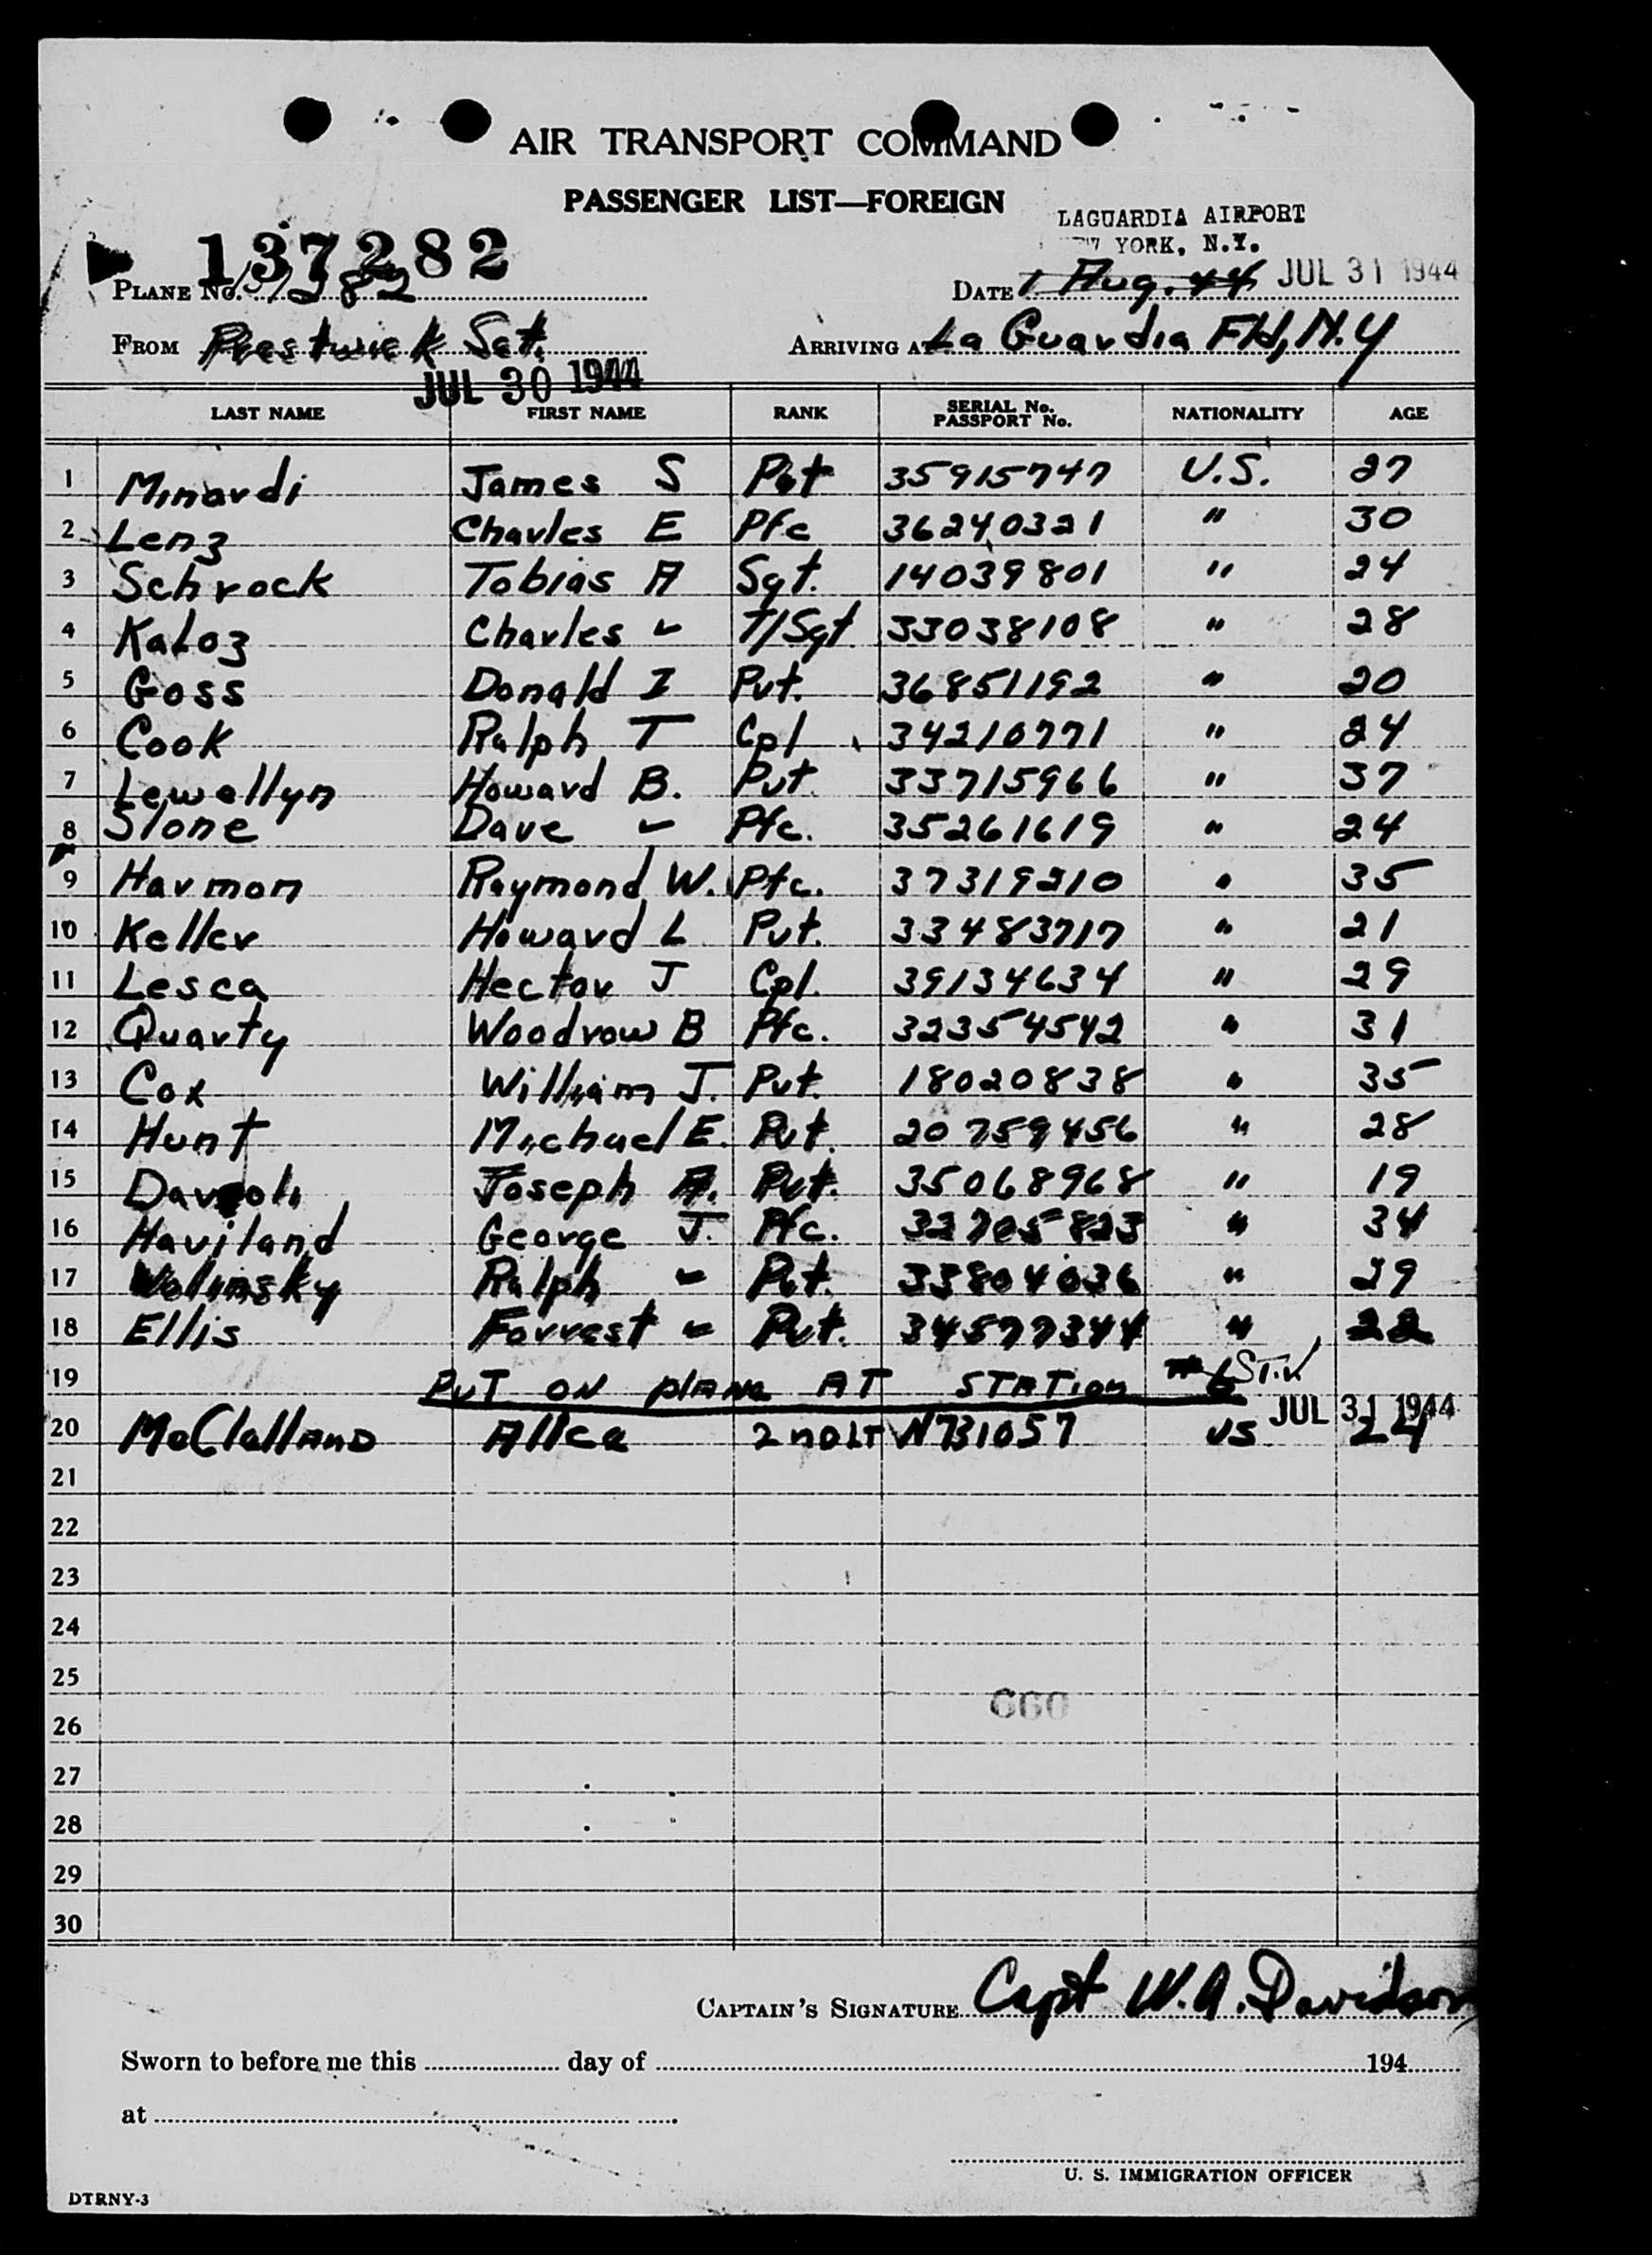 AIR TRANSPORT COMMAND
PASSENGER LIST—FOREIGN
LAGUARDIA AIRPORT
YORK, N.Y.
137282
PLANE No. 137282 DATE 1 Aug. 44 JUL 31 1944
FROM Prestwick Sct. ARRIVING AT La Guardia Fld, N.Y
JUL 30 1944
LAST NAME FIRST NAME RANK SERIAL No. PASSPORT No. NATIONALITY AGE
1 Minardi James S Pvt 35915747 U.S. 27
2 Lenz Charles E Pfc 36240321 " 30
3 Schrock Tobias A Sgt. 14039801 " 24
4 Kaloz Charles - T/Sgt. 33038108 " 28
5 Goss Donald I Pvt. 36851192 " 20
6 Cook Ralph T Cpl 34210771 " 24
7 Lewellyn Howard B. Pvt. 33715966 " 37
8 Slone Dave - Pfc. 35261619 " 24
9 Harmon Raymond W. Pfc. 37319210 " 35
10 Keller Howard L Pvt. 33483717 " 21
11 Lesca Hector J Cpl. 39134634 " 29
12 Quarty Woodrow B Pfc. 32354542 " 31
13 Cox William J. Pvt. 18020838 " 35
14 Hunt Michael E. Pvt. 20759456 " 28
15 Joseph A. Pvt. 35068968 " 19
16 Haviland George J. Pfc. 32705823 " 34
17 Wolinsky Ralph - Pvt. 33804036 " 29
18 Ellis Forrest - Pvt. 34577344 " 22
19 PUT ON PLANE AT STATION
JUL 31 1944
20 McClelland Alice 2nd LT N731057 US 24
21
22
23
24
25
660
26
27
28
29
30
CAPTAIN'S SIGNATURE Capt W.A. Davidson
Sworn to before me this day of 194
at
U. S. IMMIGRATION OFFICER
DTRNY-3